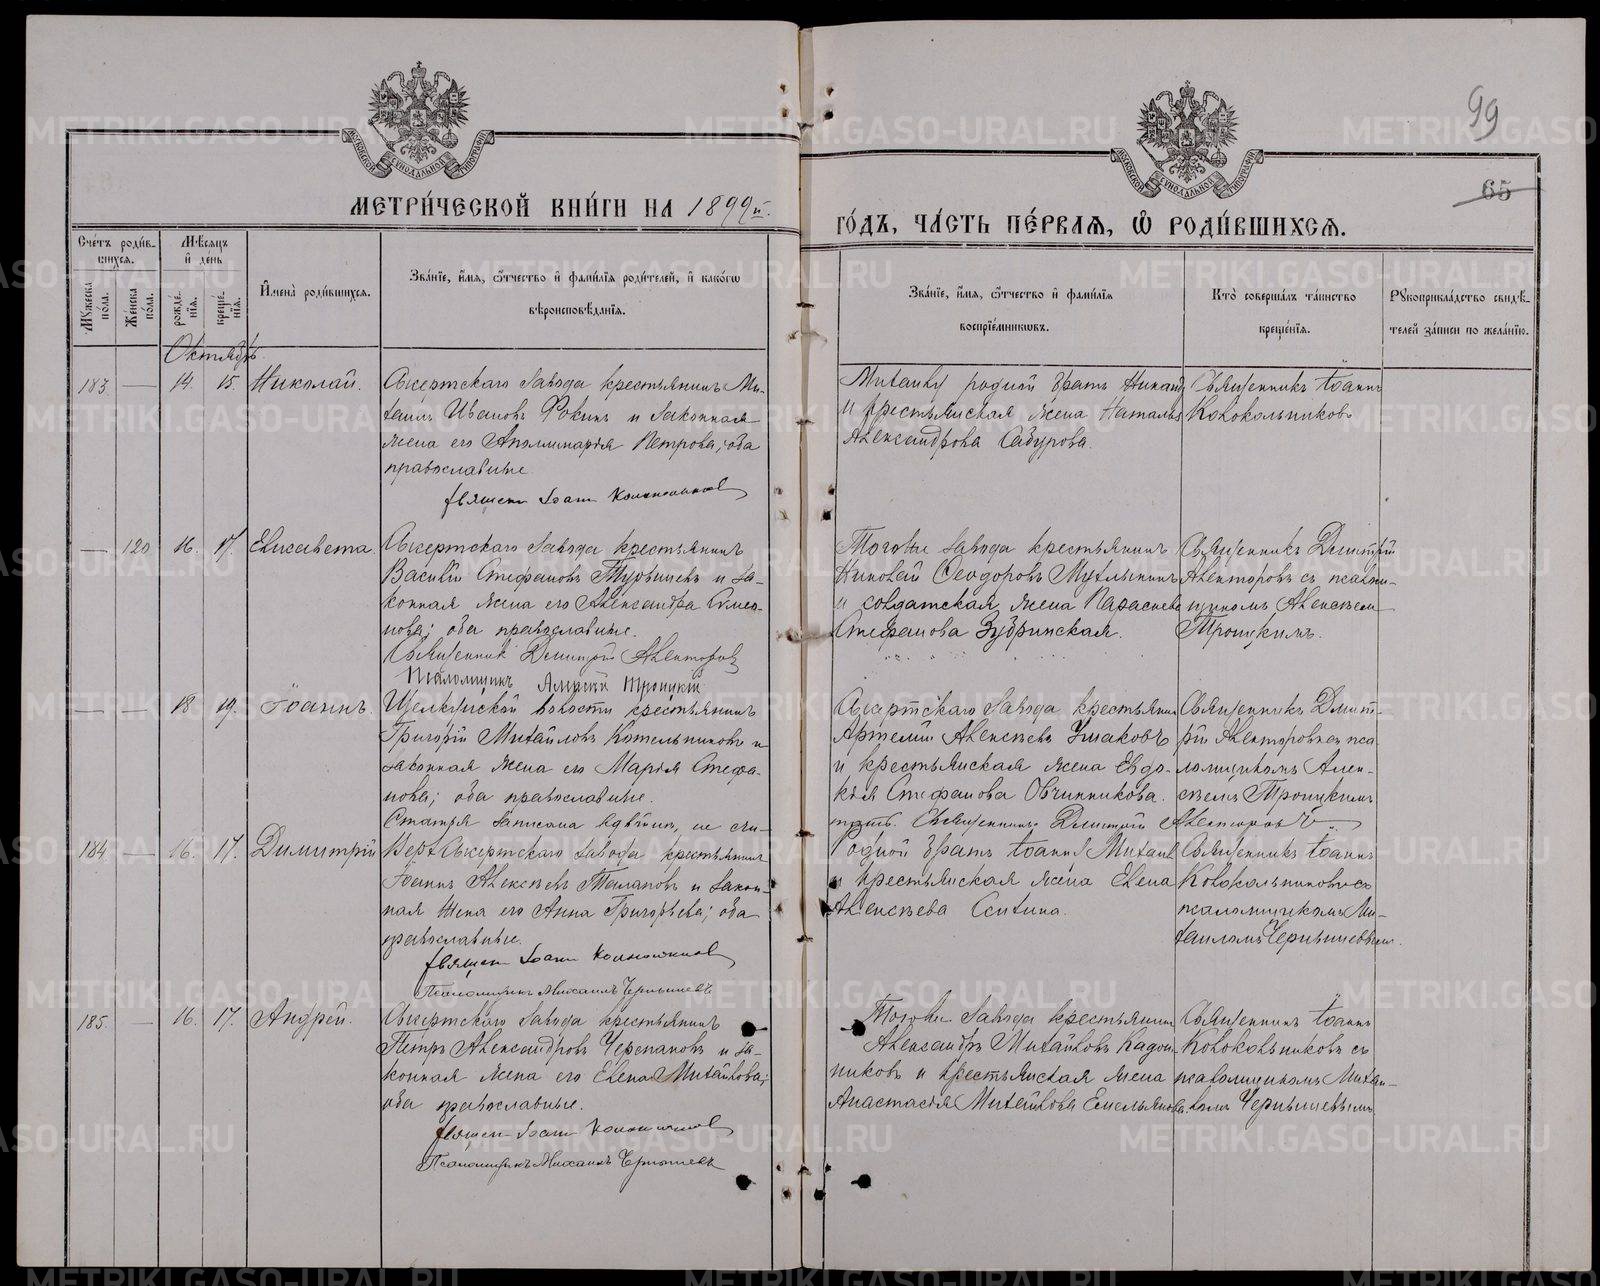 99
65
МЕТРИ́ЧЕСКОЙ КНИ́ГИ НА 1899й.
ГО́ДЪ, ЧА́СТЬ ПЕ́РВАЯ, Ѡ҆ РОДИ́ВШИХСЯ.
Сче́тъ роди́в-
шихся.
Мѣ́сяцъ
и҆ день
Му́жеска по́ла.
Же́нска по́ла.
рожде́нїя.
креще́нїя.
И҆мена̀ роди́вшихся.
Зва́нїе, и҆́мя, ѻ҆́тчество и҆ фами́лїя роди́телей, и҆ како́гѡ
вѣроисповѣ́данїя.
Зва́нїе, и҆́мя, ѻ҆́тчество и҆ фами́лїя
воспрїе́мниковъ.
Кто̀ соверша́лъ та́инство
креще́нїя.
Рꙋкоприкла́дство свидѣ́-
телей за́писи по жела́нїю.
Октябрь.
183 — 14. 15. Николай.
Сысертскаго Завода крестьянинъ Ми-
хаилъ Ивановъ Фокинъ и законная
жена его Аполлинарія Петрова; оба
православные.
Священ Іоанн Колокольников
Михаилу родной братъ
и крестьянская жена Наталья
Александрова Сабурова.
Священникъ Іоаннъ
Колокольниковъ
— 120 16. 17. Елисавета.
Сысертскаго Завода крестьянинъ
Василій Стефановъ и за-
конная жена его Александра Симео-
нова; оба православные.
Священник Димитрій Алекторов
Псаломщикъ Алексѣй Троицкій
Тогоже завода крестьянинъ
Николай Ѳеодоровъ Мухлынинъ
и солдатская жена Параскева
Стефанова Зубринская.
Священникъ Димитрій
Алекторовъ съ псалом-
щикомъ Алексѣем
Троицкимъ.
— — 18 19. Іоаннъ.
Щелкунской волости крестьянинъ
Григорій Михайловъ Котельниковъ и
законная жена его Марія Стефа-
нова; оба православные.
Статья записана вдвойнѣ, не счи-
Сысертскаго Завода крестьянин
Артемій Алексѣевъ Ушаковъ
и крестьянская жена Евдо-
кія Стефанова Овчинникова.
тать. Священникъ Димитрій Алекторов
Священникъ Димит-
рій Алекторовъ съ пса
ломщикомъ Алек-
сѣемъ Троицкимъ
184 — 16. 17. Димитрій
Верх Сысертскаго завода крестьянинъ
Іоаннъ Алексѣевъ Талановъ и закон-
ная жена его Анна Григорьева; оба
православные.
Священ Іоанн Колокольников
Псаломщикъ Михаилъ Чернышевъ
Родной братъ Іоанна Михаил
и крестьянская жена Елена
Алексѣева
Священникъ Іоаннъ
Колокольниковъ съ
псаломщикомъ Ми-
хаиломъ Чернышевымъ.
185. — 16. 17. Андрей.
Сысертскаго Завода крестьянинъ
Петръ Александровъ Черепановъ и за-
конная жена его Елена Михайлова;
оба православные.
Священ Іоанн Колокольников
Псаломщикъ Михаилъ Чернышевъ
Тогоже Завода крестьянин
Александръ Михайловъ Кадош-
никовъ и крестьянская жена
Анастасія Михайлова Емельянова.
Священникъ Іоаннъ
Колокольниковъ съ
псаломщикомъ Михаи-
ломъ Чернышевымъ